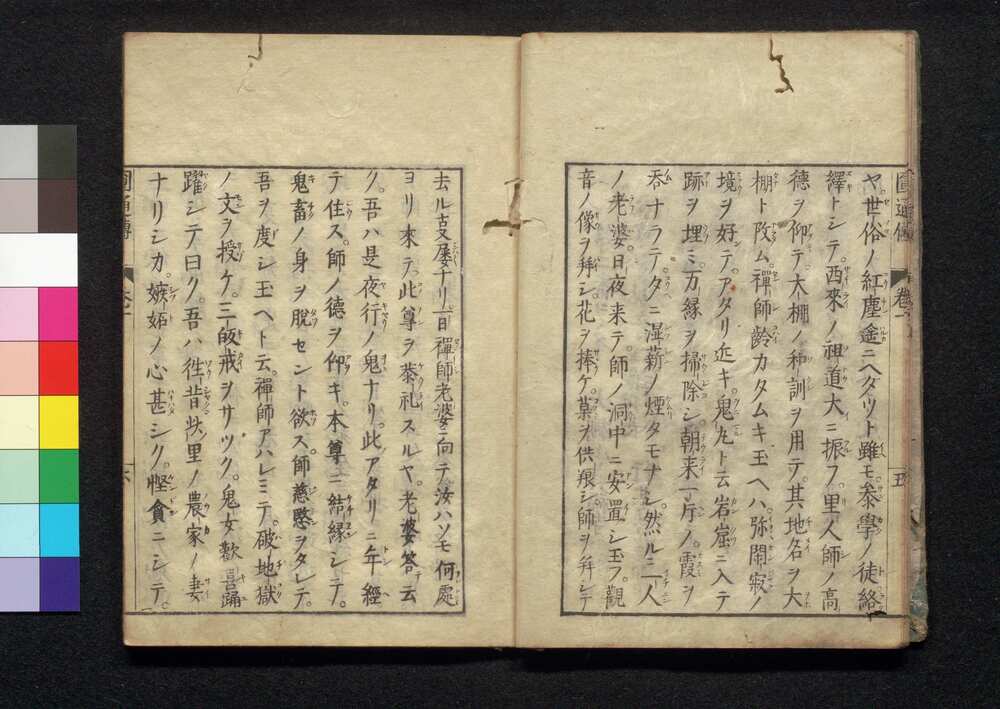 圓通傳 卷一 五
ヤ世俗ノ紅塵遙ニヘダヽリト雖モ參學ノ徒絡
繹トシテ西來ノ祖道大ニ振フ里人師ノ高
德ヲ仰テ大棚ノ和訓ヲ用テ其地名ヲ大
棚ト改ム禪師齡カタムキ玉ヘハ弥閑寂ノ
境ヲ好テアタリ近キ鬼丸ト云岩崫ニ入テ
跡ヲ埋ミ万緣ヲ掃除シ朝来一片ノ霞ヲ
吞ナラテタヽニ濕薪ノ煙タモナシ然ルニ一人
ノ老婆日夜来テ師ノ洞中ニ安置シ玉フ觀
音ノ像ヲ拜シ花ヲ捧ケ菓ヲ供シ師ヲ拜シテ
去ル支屡ナリ一日禪師老婆ニ向テ汝ハソモ何處
ヨリ來テ此尊ヲ恭礼スルヤ老婆答云
ク吾ハ是夜行ノ鬼ナリ此アタリニ年經
テ住ス師ノ德ヲ仰キ本尊ニ結緣シテ
鬼畜ノ身ヲ脫セント欲ス師慈愍ヲタレテ
吾ヲ度シ玉ヘト云禪師アハレミテ破地獄
ノ文ヲ授ケ三皈戒ヲサツク鬼女歡喜踊
躍シテ曰ク吾ハ徃昔此里ノ農家ノ妻
ナリシカ嫉妬ノ心甚シク慳貪ニシテ
圓通傳 卷一 六